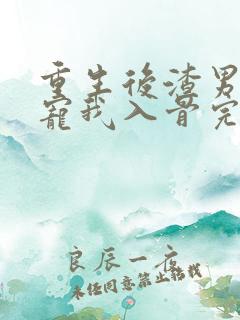 重生後渣男
寵我入骨完
良辰一夜
未经同意禁止转载